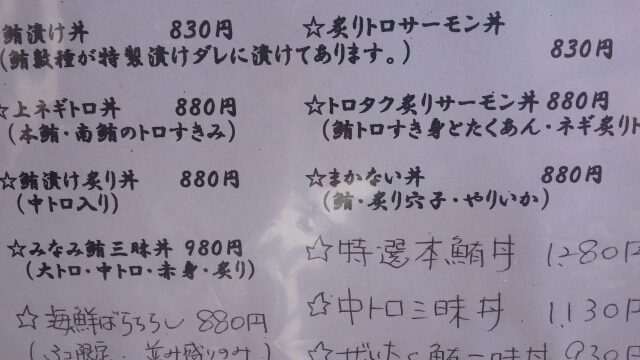 鮪漬け丼 830円
(鮪数種が特製漬けダレに漬けてあります。)
☆上ネギトロ丼 880円
(本鮪・南鮪のトロすきみ)
☆鮪漬け炙り丼 880円
(中トロ入り)
☆みなみ鮪三昧丼 980円
(大トロ・中トロ・赤身・炙り)
☆海鮮ばらちらし 880円
☆炙りトロサーモン丼
830円
☆トロタク炙りサーモン丼 880円
(鮪トロすき身とたくあん・ネギ炙りト
☆まかない丼 880円
(鮪・炙り穴子・やりいか)
☆特選本鮪丼 1,280円
☆中トロ三昧丼 1,130円
☆ぜいたく鮪三昧丼 930円